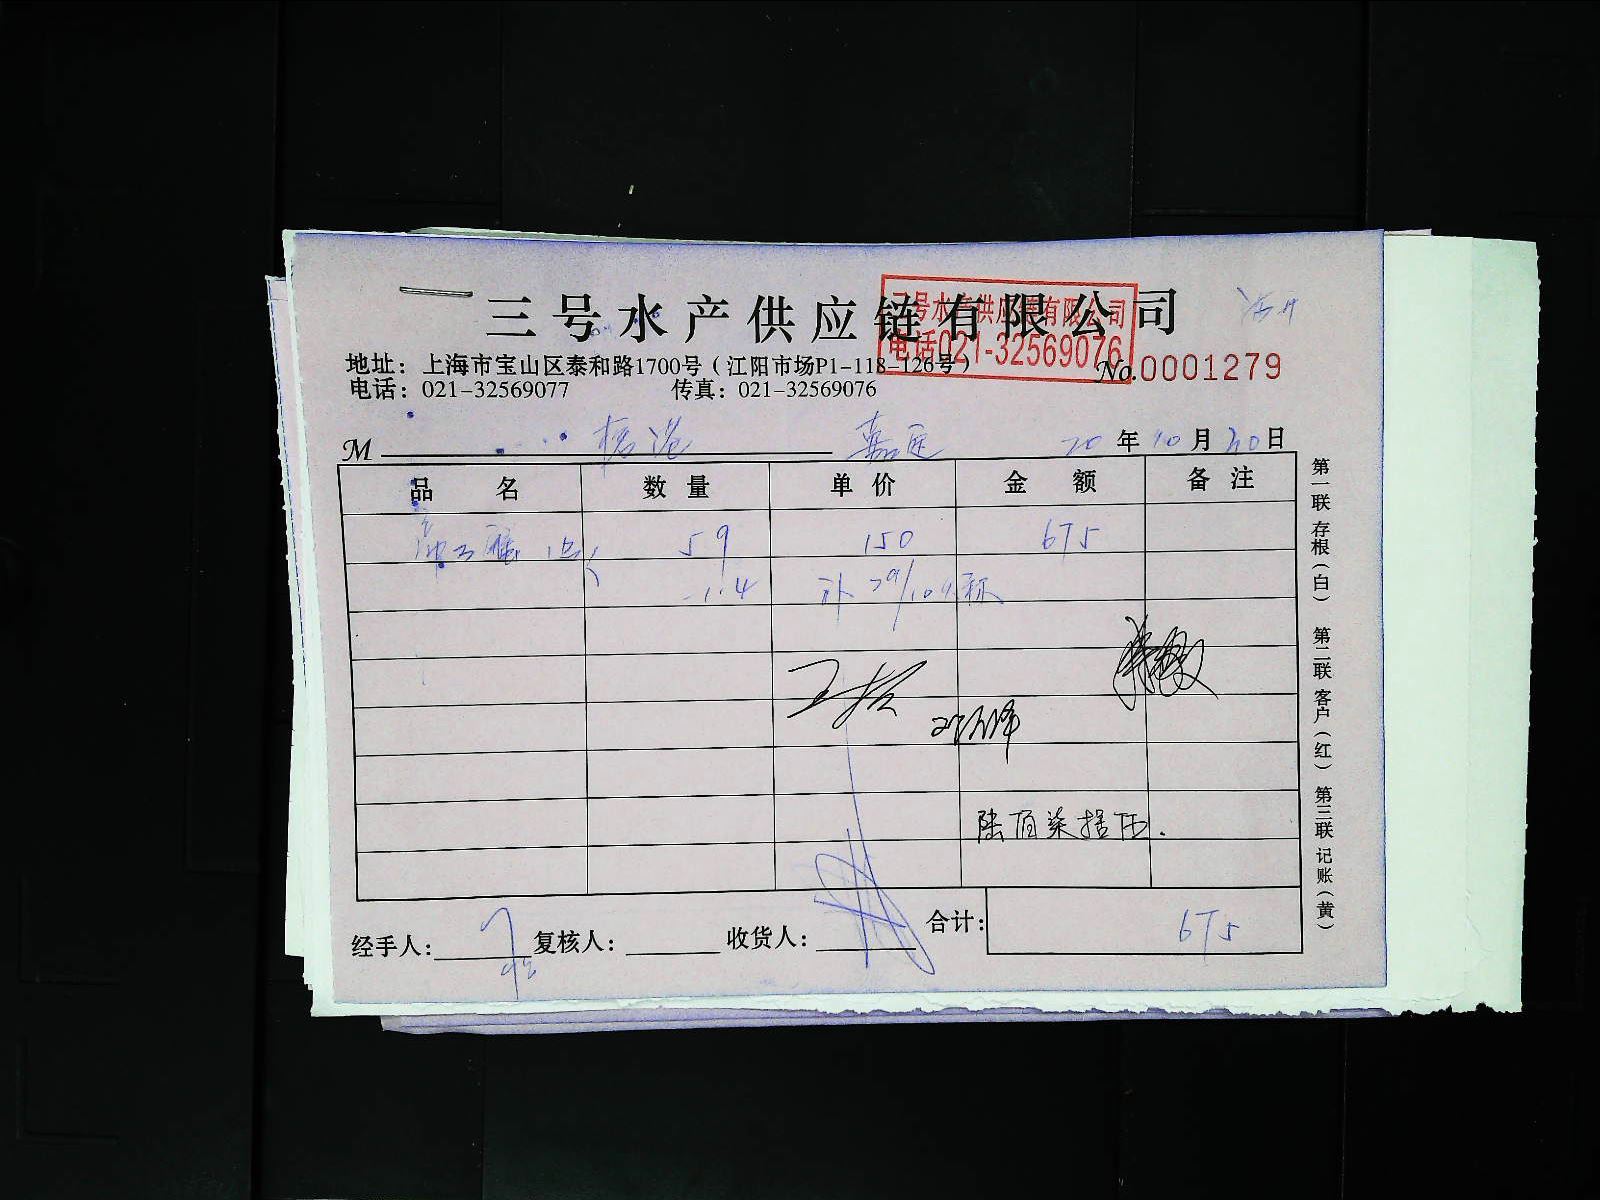 三号水产供应链有限公司
三号水产供应链有限公司
电话021-32569076
地址：上海市宝山区泰和路1700号（江阳市场P1-118-126号）
No.0001279
电话：021-32569077 传真：021-32569076
M 20年10月30日
品名 数量 单价 金额 备注
59 150 675
-1.4 补29/10
陆佰柒拾伍.
经手人： 复核人： 收货人： 合计： 675
第一联 存根（白） 第二联 客户（红） 第三联 记账（黄）